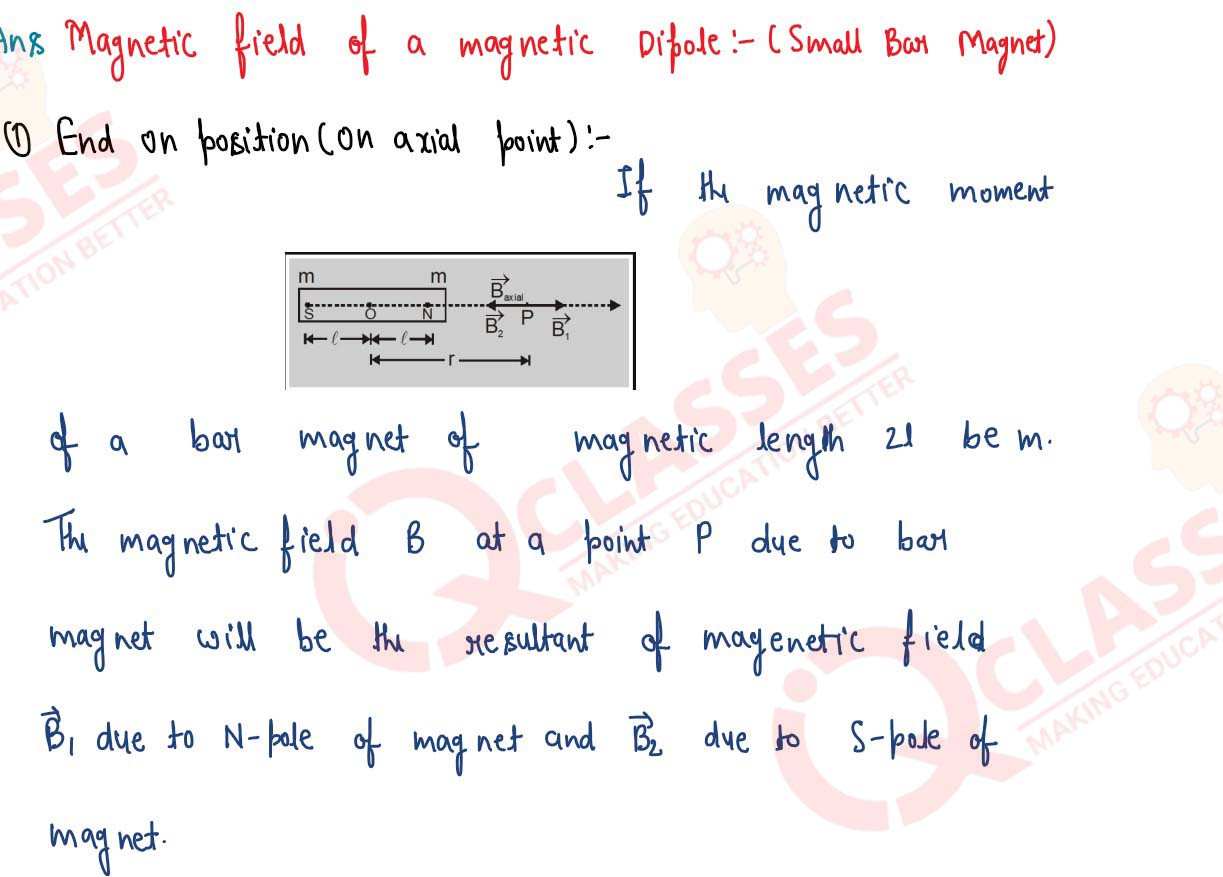 Ans Magnetic field of a magnetic Dipole:- (Small Bar Magnet)
① End on position (on axial point):-
If the magnetic moment
m m
B⃗axial
S O N B⃗₂ P B⃗₁
ℓ ℓ
r
of a bar magnet of magnetic length 2l be m.
The magnetic field B at a point P due to bar
magnet will be the resultant of magenetic field
B⃗₁ due to N-pole of magnet and B⃗₂ due to S-pole of
magnet.
SES
ATION BETTER
CLASSES
MAKING EDUCATION BETTER
CLASS
MAKING EDUCAT